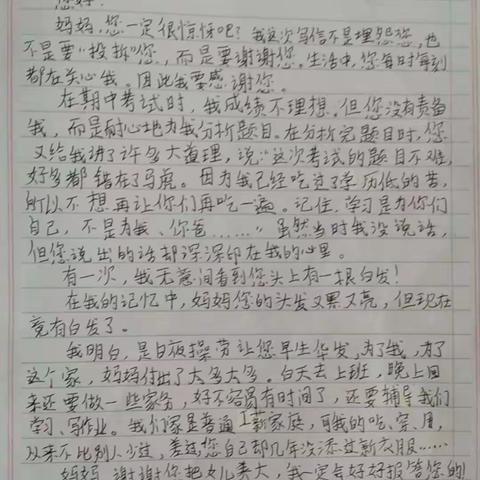 您好！
妈妈，您一定很惊讶吧？我这次写信不是埋怨您，也
不是要“投拆”您，而是要谢谢您。生活中，您每时每刻
都在关心我。因此我要感谢您。
在期中考试时，我成绩不理想。但您没有责备
我，而是耐心地为我分析题目。在分析完题目时，您
又给我讲了许多大道理，说：“这次考试的题目不难，
好多都错在了马虎。因为我已经吃过了学历低的苦，
所以不想再让你们再吃一遍。记住，学习是为你们
自己，不是为我、你爸……”虽然当时我没说话，
但您说出的话却深深印在我的心里。
有一次，我无意间看到您头上有一根白发！
在我的记忆中，妈妈您的头发又黑又亮，但现在
竟有白发了。
我明白，是日夜操劳让您早生华发，为了我，为了
这个家，妈妈付出了太多太多。白天去上班，晚上回
来还要做一些家务，好不容易有时间了，还要辅导我们
学习、写作业。我们家是普通工薪家庭，可我的吃、穿、用，
从来不比别人少过，差过，您自己却几年没添过新衣服……
妈妈，谢谢你把女儿养大，我一定会好好报答您的！